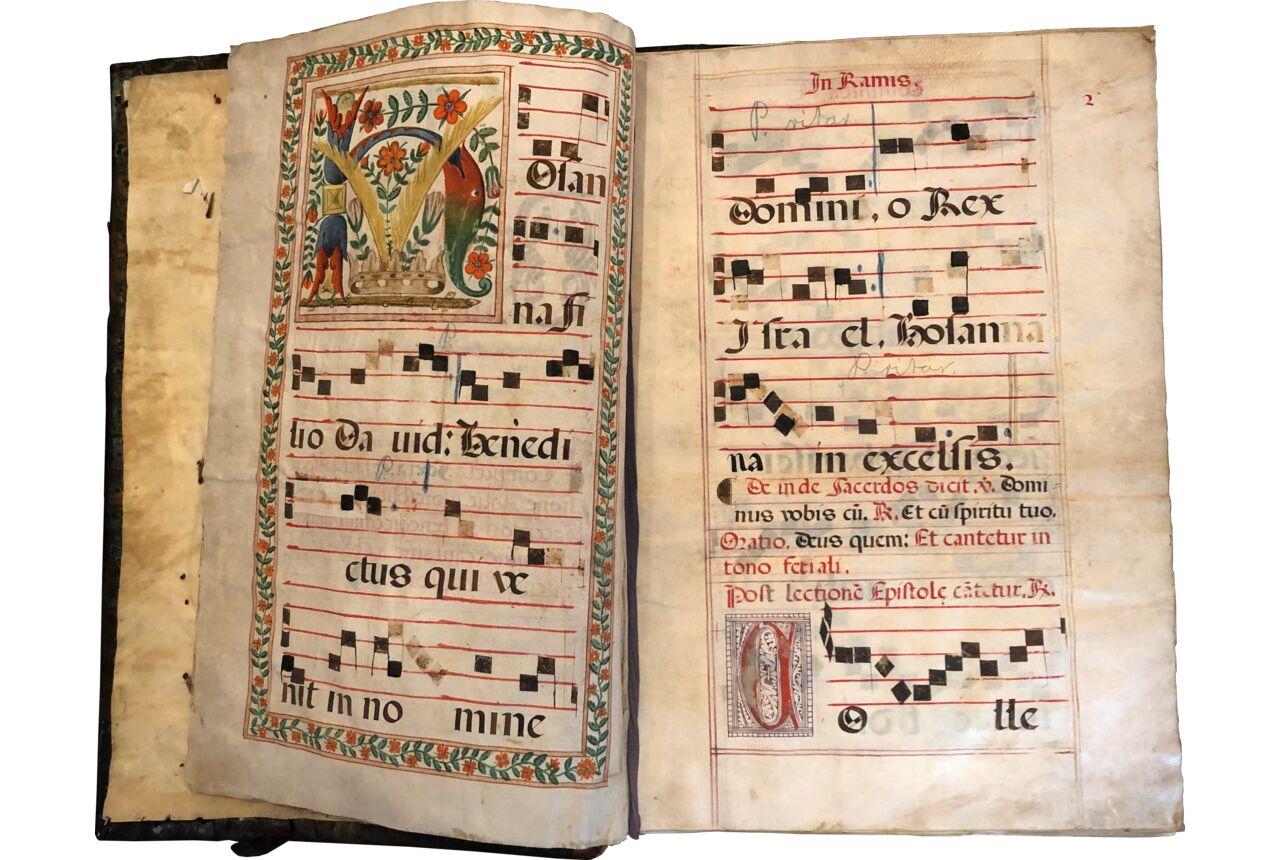 Osan
na fi
lio Da uid: Benedi
ctus qui ve
nit in no mine
In Ramis.
2
P. vitar
Domini, o Rex
Isra el, Hosanna
P. vitar.
na in excelsis.
De in de Sacerdos dicit. ℣. Domi
nus vobis cū. ℟. Et cū spiritu tuo.
Oratio. Deus quem: Et cantetur in
tono feriali.
Post lectionē Epistolę cātatur. ℟.
C O lle